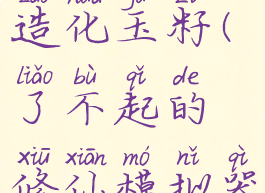 造化玉籽(
liǎo bù qǐ de
了不起的
xiū xiān mó nǐ qì
修仙模拟器